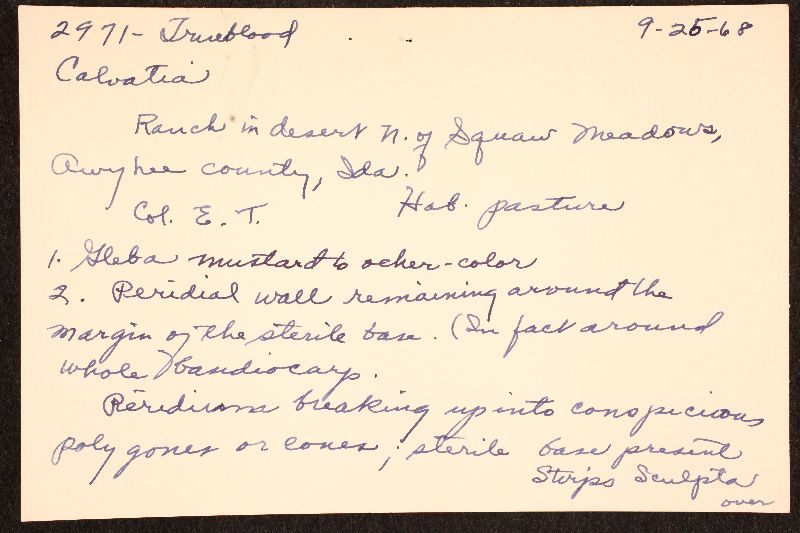 2971- Trueblood 9-25-68
Calvatia
Ranch in desert N. of Squaw Meadows,
Owyhee county, Ida.
Col. E. T. Hab. pasture
1. Gleba mustard to ocher-color
2. Peridial wall remaining around the
margin of the sterile base. (In fact around
whole basidiocarp.
Peridium breaking up into conspicious
polygones or cones; sterile base present
Stirps Sculpta
over